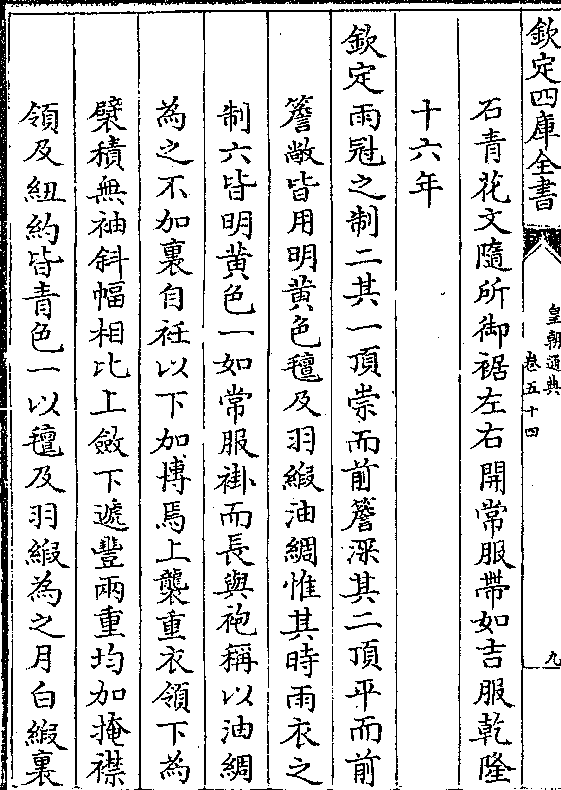 欽定四庫全書
皇朝通典
卷五十四
九
石青花文隨所御裾左右開常服帶如吉服乾隆
十六年
欽定雨冠之制二其一頂崇而前簷深其二頂平而前
簷敞皆用明黃色氊及羽緞油綢惟其時雨衣之
制六皆明黃色一如常服褂而長與袍稱以油綢
為之不加裏自衽以下加博焉上襲重衣領下為
襞積無袖斜幅相比上斂下遞豐兩重均加掩襟
領及紐約皆青色一以氊及羽緞為之月白緞裏